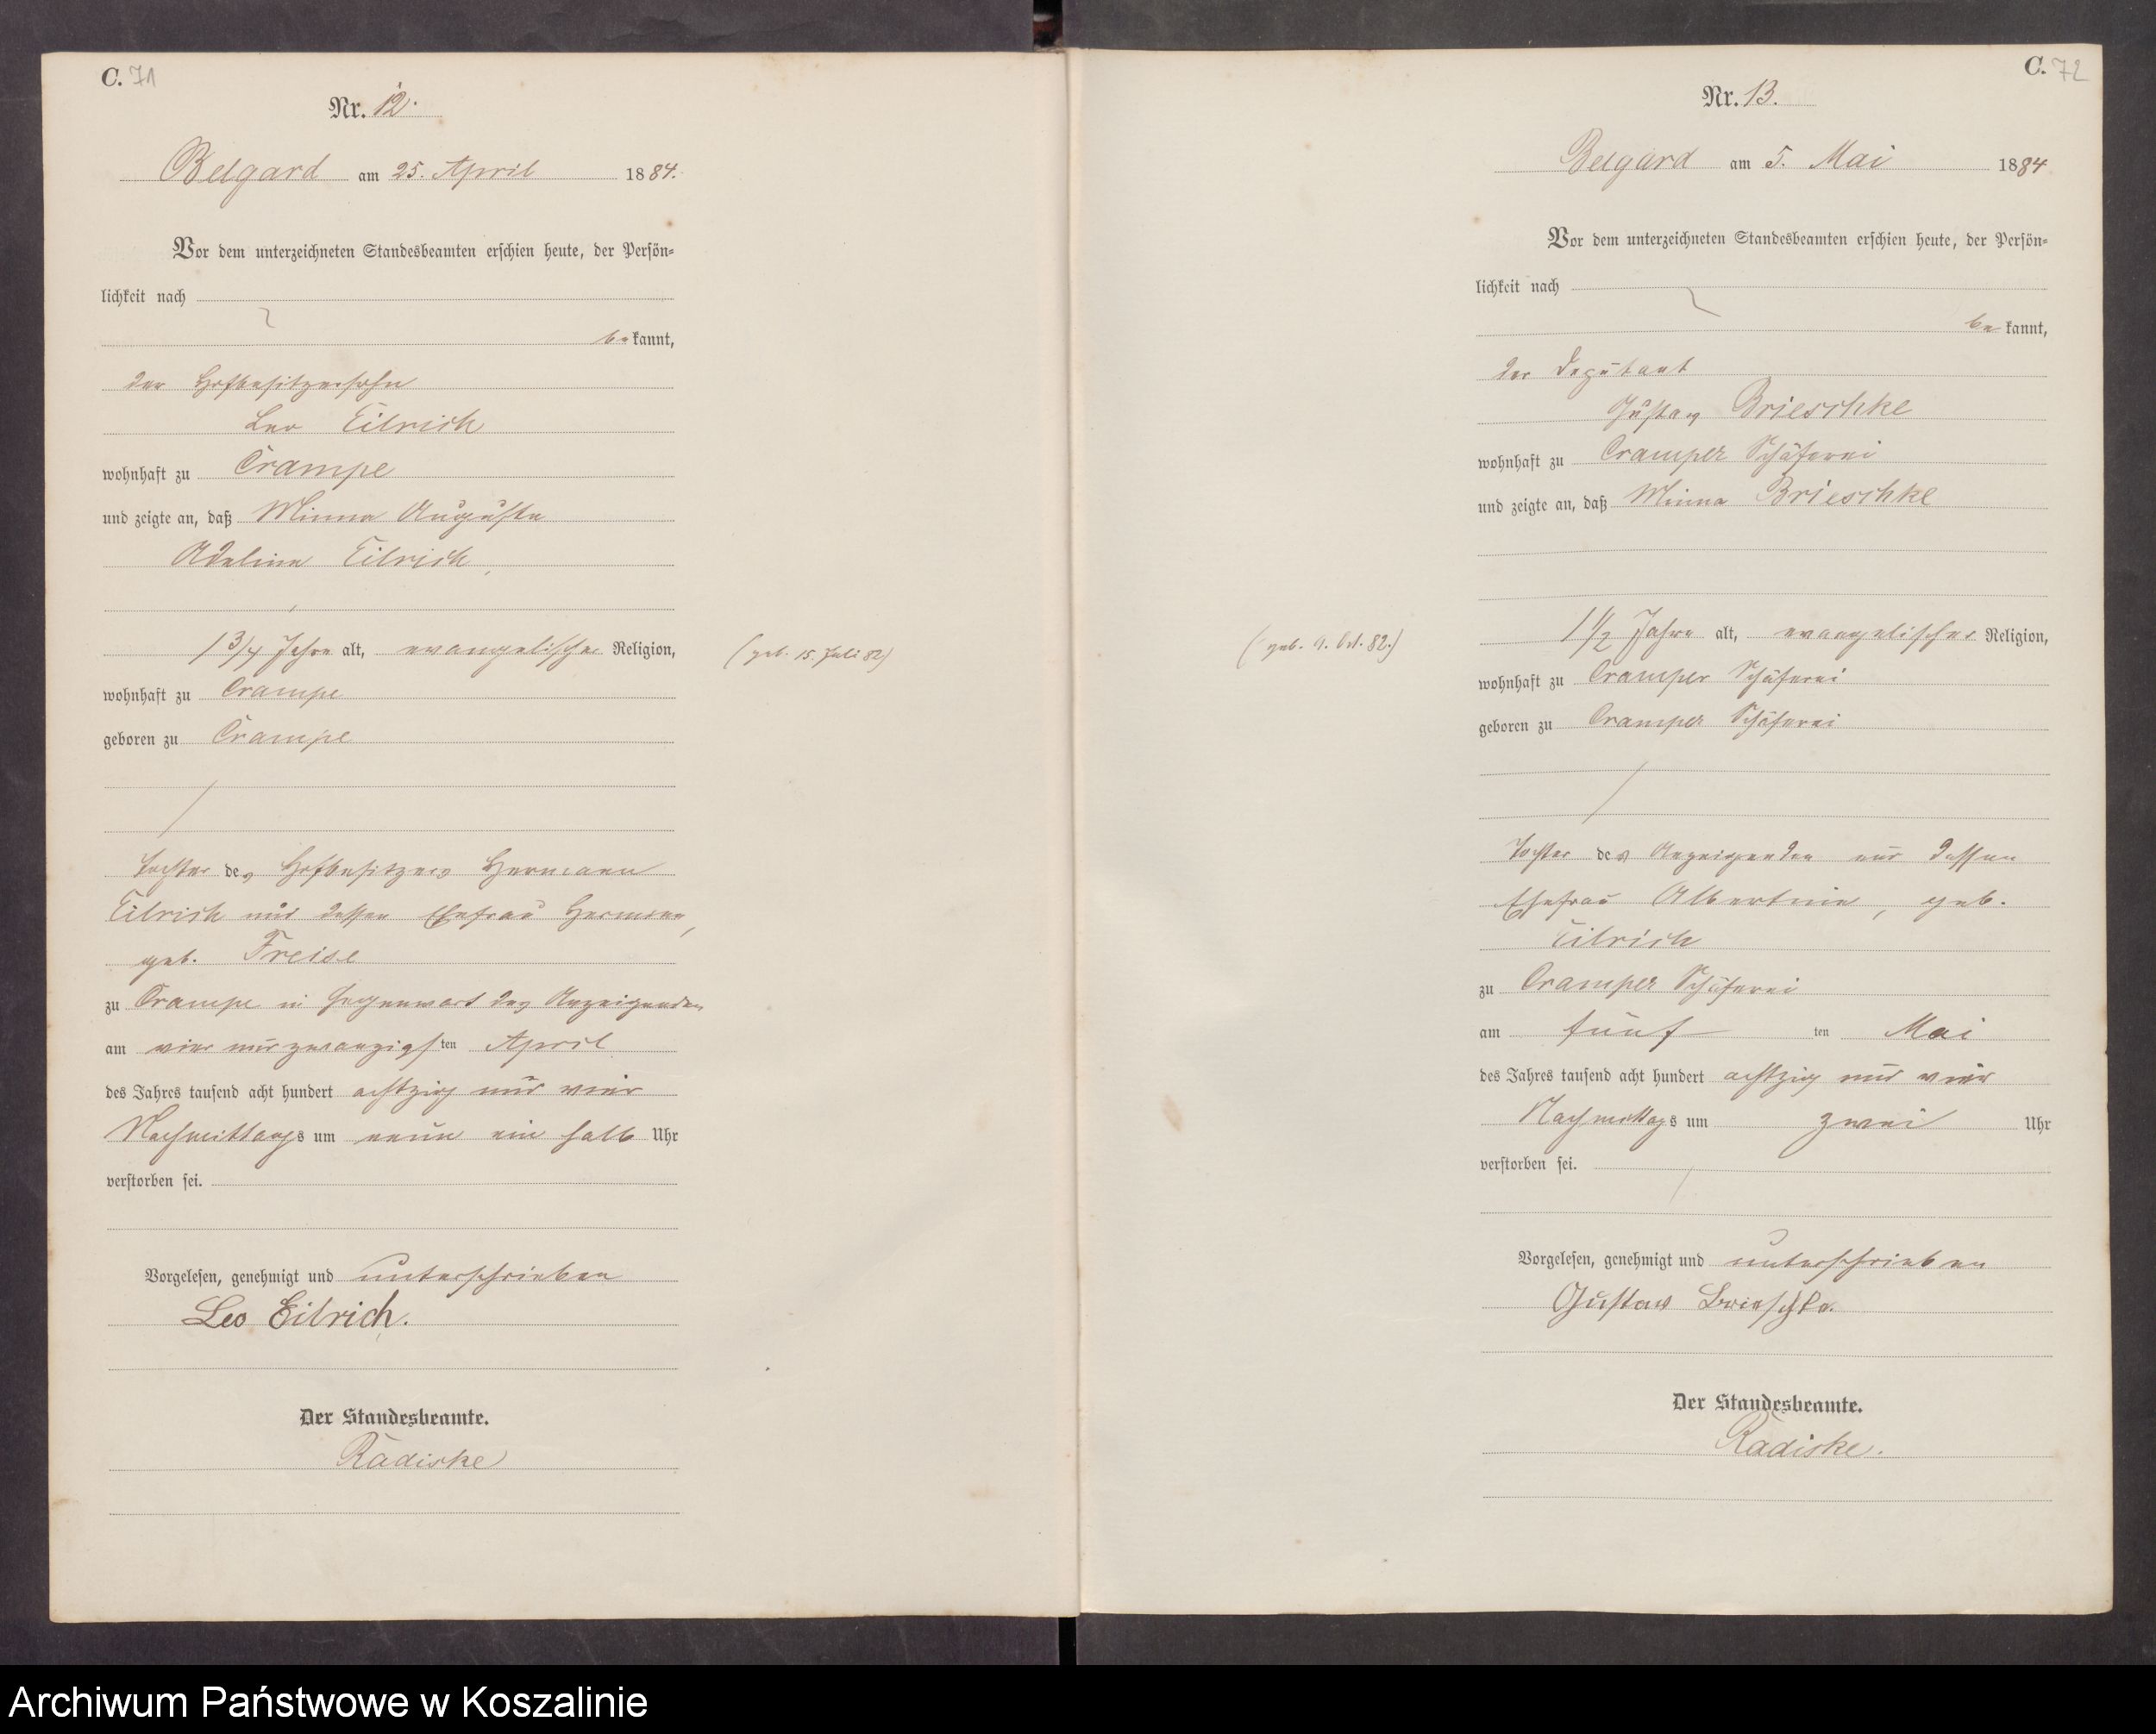 C. 71
Nr. 12.
Belgard am 25. April 1884.
Vor dem unterzeichneten Standesbeamten erschien heute, der Persön-
lichkeit nach
bekannt,
der Hofbesitzersohn
Leo Eilrich
wohnhaft zu Crampe
und zeigte an, daß Minna Auguste
Adeline Eilrich,
1 3/4 Jahre alt, evangelischer Religion,
(geb. 15. Juli 82)
wohnhaft zu Crampe
geboren zu Crampe
Tochter des Hofbesitzers Hermann
Eilrich und dessen Ehefrau Hermine,
geb. Freise
zu Crampe in Gegenwart des Anzeigenden
am vier und zwanzigsten April
des Jahres tausend acht hundert achtzig und vier
Nachmittags um neun ein halb Uhr
verstorben sei.
Vorgelesen, genehmigt und unterschrieben
Leo Eilrich.
Der Standesbeamte.
Radiske
C. 72
Nr. 13.
Belgard am 5. Mai 1884
Vor dem unterzeichneten Standesbeamten erschien heute, der Persön-
lichkeit nach
bekannt,
der Deputant
Gustav Brieschke
wohnhaft zu Cramper Schäferei
und zeigte an, daß Minna Brieschke
1 1/2 Jahre alt, evangelischer Religion,
(geb. 9. Oct. 82.)
wohnhaft zu Cramper Schäferei
geboren zu Cramper Schäferei
Tochter des Anzeigenden und dessen
Ehefrau Albertine, geb.
Eilrich
zu Cramper Schäferei
am fünften Mai
des Jahres tausend acht hundert achtzig und vier
Nachmittags um zwei Uhr
verstorben sei.
Vorgelesen, genehmigt und unterschrieben
Gustav Brieschke.
Der Standesbeamte.
Radiske.
Archiwum Państwowe w Koszalinie